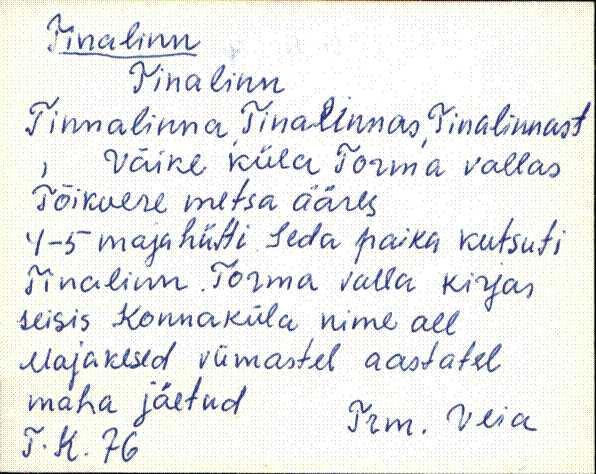 Tinalinn
Tinalinn
Tinnalinna, Tinalinnas, Tinalinnast
, Väike küla Torma vallas
Tõikvere metsa ääres
4-5 majahütti. Seda paika kutsuti
Tinalinn. Torma valla kirjas
seisis Konnaküla nime all
Majakesed viimastel aastatel
maha jäetud
Trm. Veia
T.K. 76